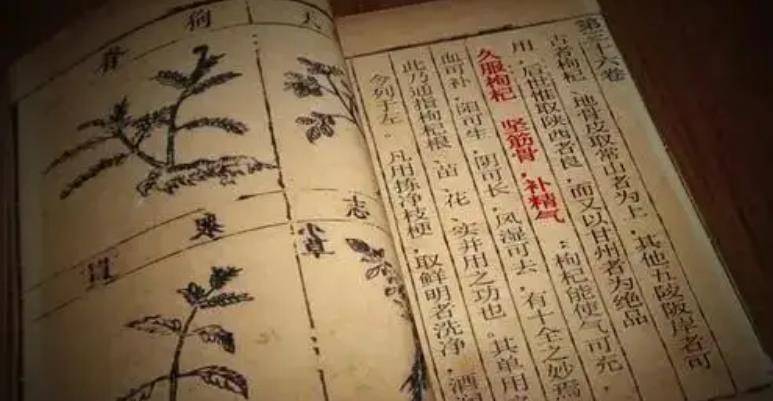 第三十六卷
古者枸杞、地骨皮取常山者为上,其他五陵阪岸者可
用,后世惟取陕西者良,而又以甘州者为绝品
久服枸杞 坚筋骨,补精气;枸杞能使气可充,
血可补,阳可生,阴可长,风湿可去,有十全之妙焉
此乃通指枸杞根、苗、花、实并用之功也。其单用
今列于左。凡用拣净枝梗,取鲜明者洗净,酒
天
狗脊
志
小草